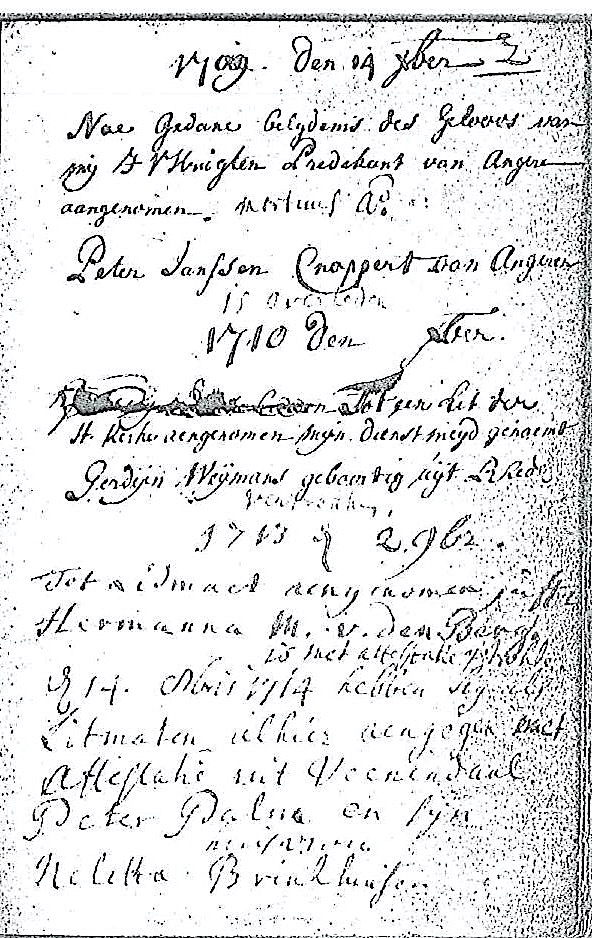 1709. Den 14 xber
Nae Gedane belydenis des Geloovs van
mij Predikant van Angeren
aangenomen.
Peter Janssen Cnoppert van Angeren
is overleden
1710 Den xber.
Tot een Lit der
Kerke aengenomen mijn dienst meijd genaemt
Gerdijn Weijmans geboortig uijt
vertrocken
1713 2 9br.
Tot Lidmaet aengenomen juffr
Hermanna M. v. den Berg
is met attestatie vertrocken
14. 1714 hebben sig als
Litmaten alhier aengegeven met
Attestatie uit Veenendaal
Peter Palm en syn
huisvrou
Neletta Brinkhuisen